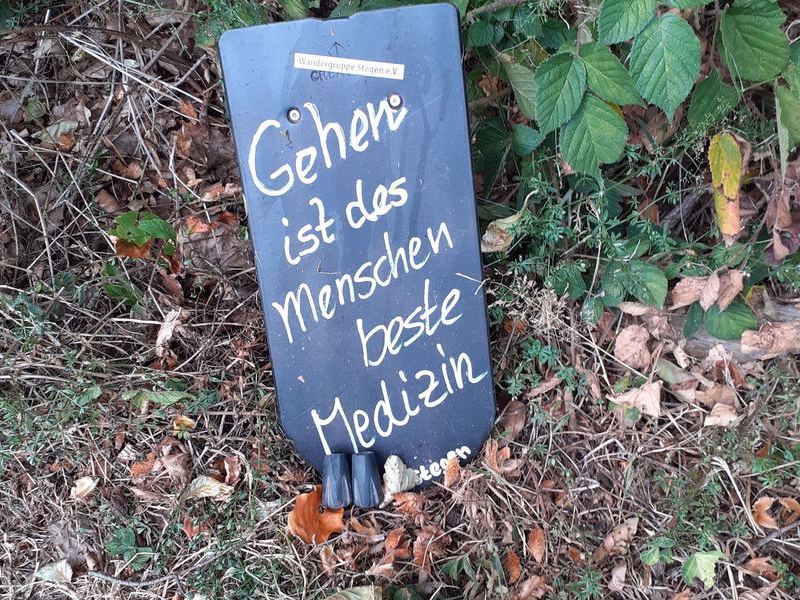 Wandergruppe Stegen e.V.
Gehen
ist des
Menschen
beste
Medizin
Stegen